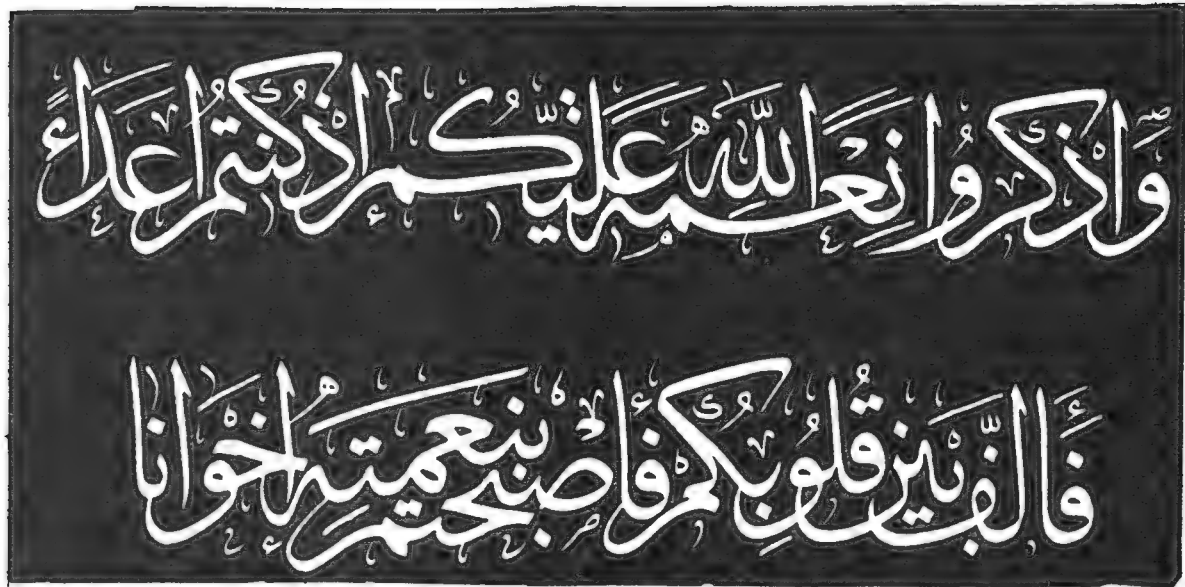 وَاذْكُرُوا نِعْمَةَ اللَّهِ عَلَيْكُمْ إِذْ كُنتُمْ أَعْدَاءً
فَأَلَّفَ بَيْنَ قُلُوبِكُمْ فَأَصْبَحْتُم بِنِعْمَتِهِ إِخْوَانًا